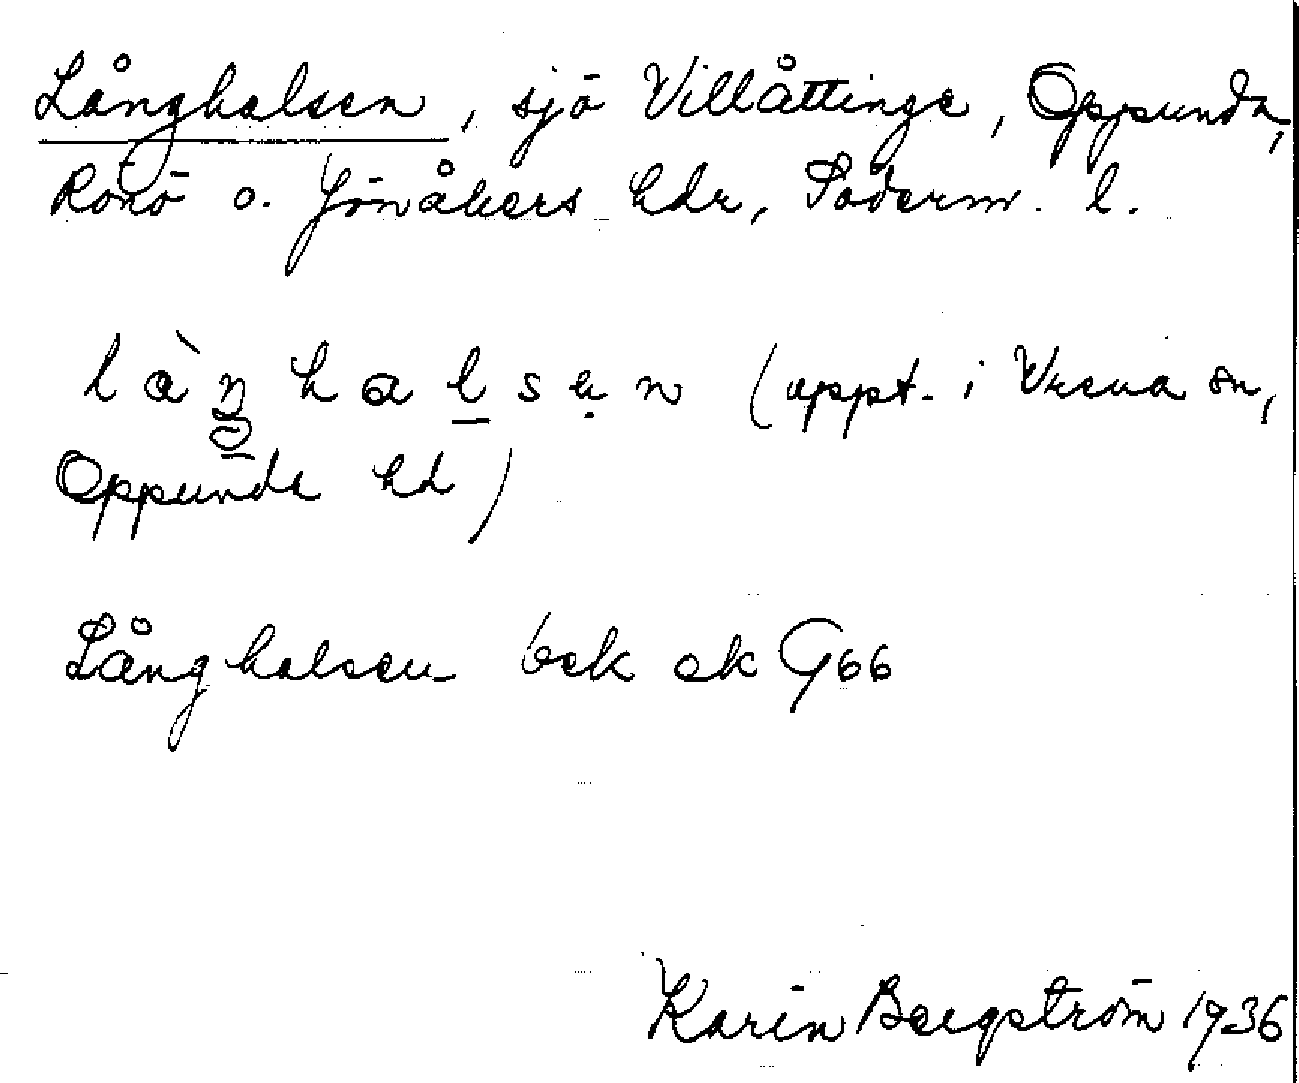 Långhalsen, sjö Villåttinge, Oppunda,
Rönö o. Jönåkers hdr, Söderm. l.
làŋhalsen (uppt. i Vrena sn,
Oppunda hd)
Långhalsen bek ek G66
Karin Bergström 1936